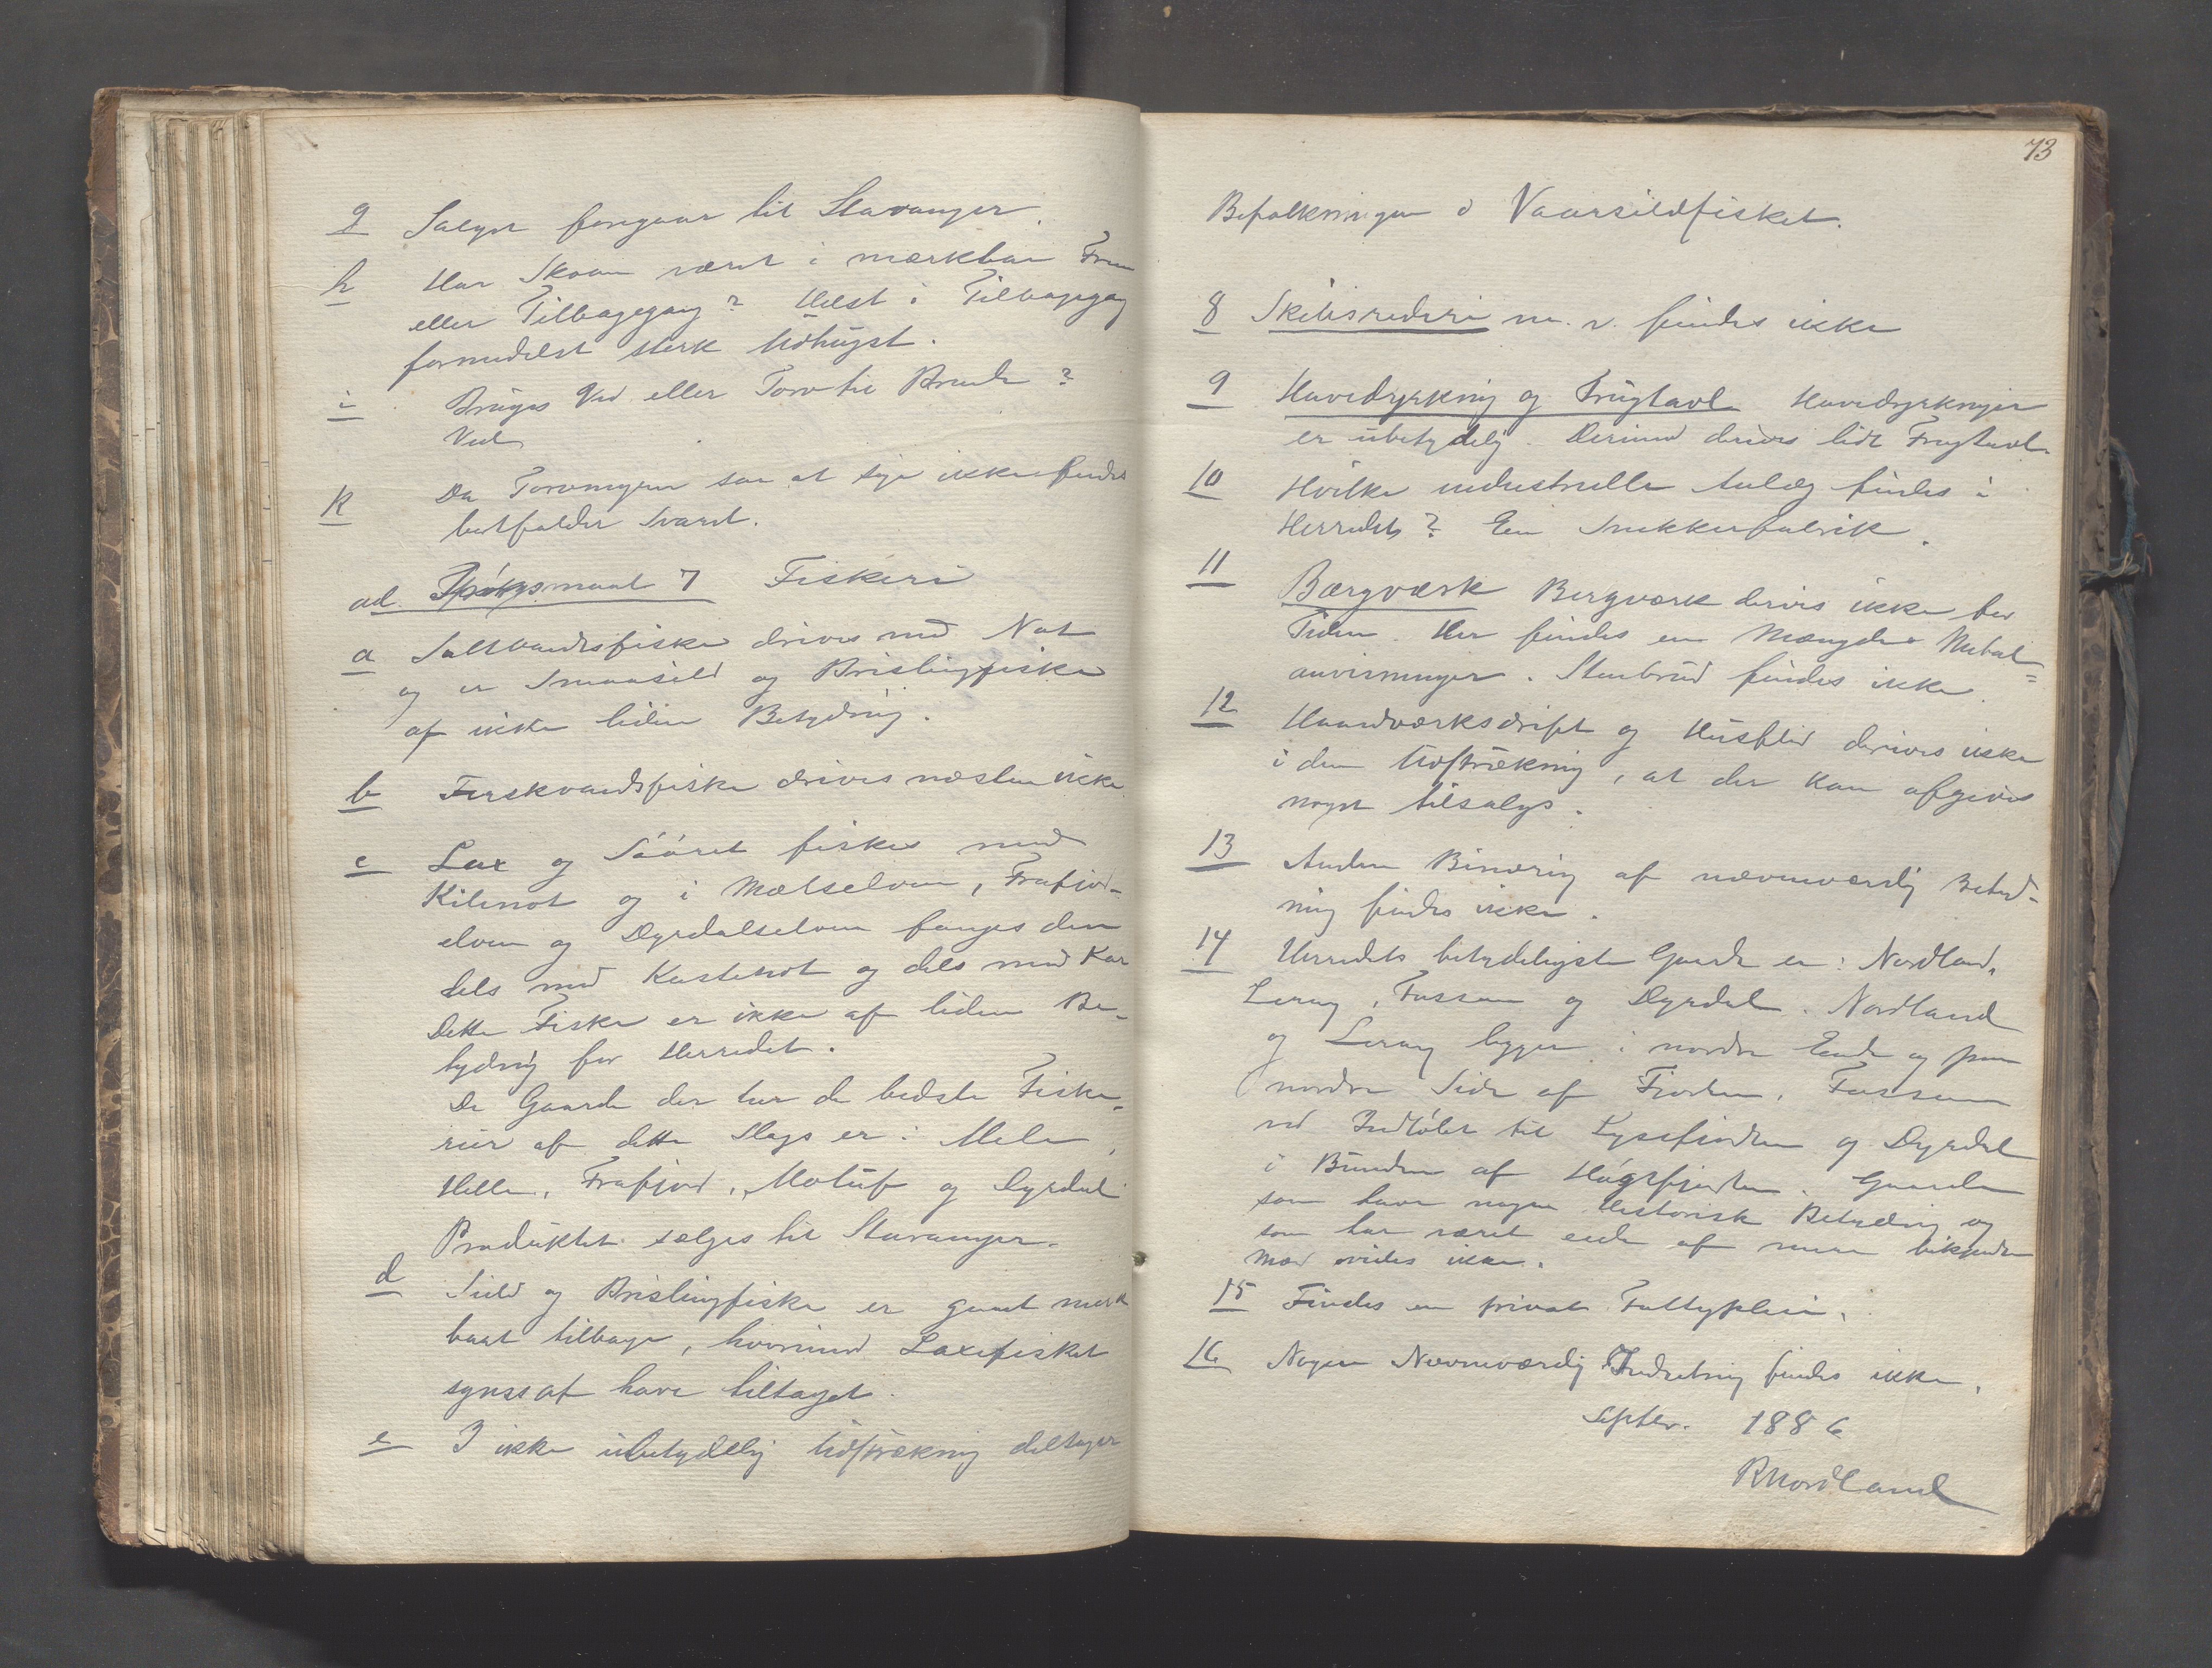 g Salget foregaar til Stavanger.
h Har Skoven været i mærkbar Frem
eller Tilbagegang? Helst i Tilbagegang
formedelst sterk Udhugst.
i Bruges Ved eller Torv til Brende?
Ved
k Da Torvmyrer saa at sige ikke findes
bortfalder Svaret.
ad. Spørgsmaal 7 Fiskeri
a Saltvandsfiske drives med Not
og er Smaasild og Brislingfiske
af ikke liden Betydning.
b Ferskvandsfiske drives næsten ikke
c Lax og Söóret fiskes med
Kilenot og i Mælselven, Frafjord-
elven og Dyrdalselven fanges den
dels med Kastenot og dels med Kar
Dette Fiske er ikke af liden Be-
tydning for Herredet.
De Gaarde der har de bedste Fiske-
rier af dette Slags er: Mele,
Helle, Frafjord, Molauf og Dyrdal
Produktet sælges til Stavanger.
d Sild og Brislingfiske er gaaet mærk
bart tilbage, hvorimod Laxefisket
synes at have tiltaget.
e I ikke ubetydelig Udstrækning deltager
73
Befolkningen i Vaarsildfisket.
8 Skibsrederi m. v. findes ikke
9 Havedyrkning og Frugtavl Havedyrkningen
er ubetydelig. Derimod drives lidt Frugtavl.
10 Hvilke industrielle Anlæg findes i
Herredet? Een Snekkerfabrik.
11 Bærgværk Bergværk drives ikke for
Tiden. Her findes en Mængde Metal=
anvisninger. Stenbrud findes ikke.
12 Haandværksdrift og Husflid drives ikke
i den Udstrækning, at der kan afgives
noget tilsalgs.
13 Anden Binæring af nævneværdig Betyd-
ning findes ikke.
14 Herredets betydeligste Gaarde er: Nordland,
Lerang, Fossan og Dyrdal. Nordland
og Lerang ligger i nordre Ende og paa
nordre Side af Fjorden, Fossan
ved Indløbet til Lysefjorden og Dyrdal
i Bunden af Høgsfjorden. Gaarde
som have nogen Historisk Betydning og
som har været eiede af mere bekjendte
Mæd vides ikke.
15 Findes en privat Fattigpleie.
16 Nogen Nævneværdig Indretning findes ikke.
Septbr. 1886
RNordland